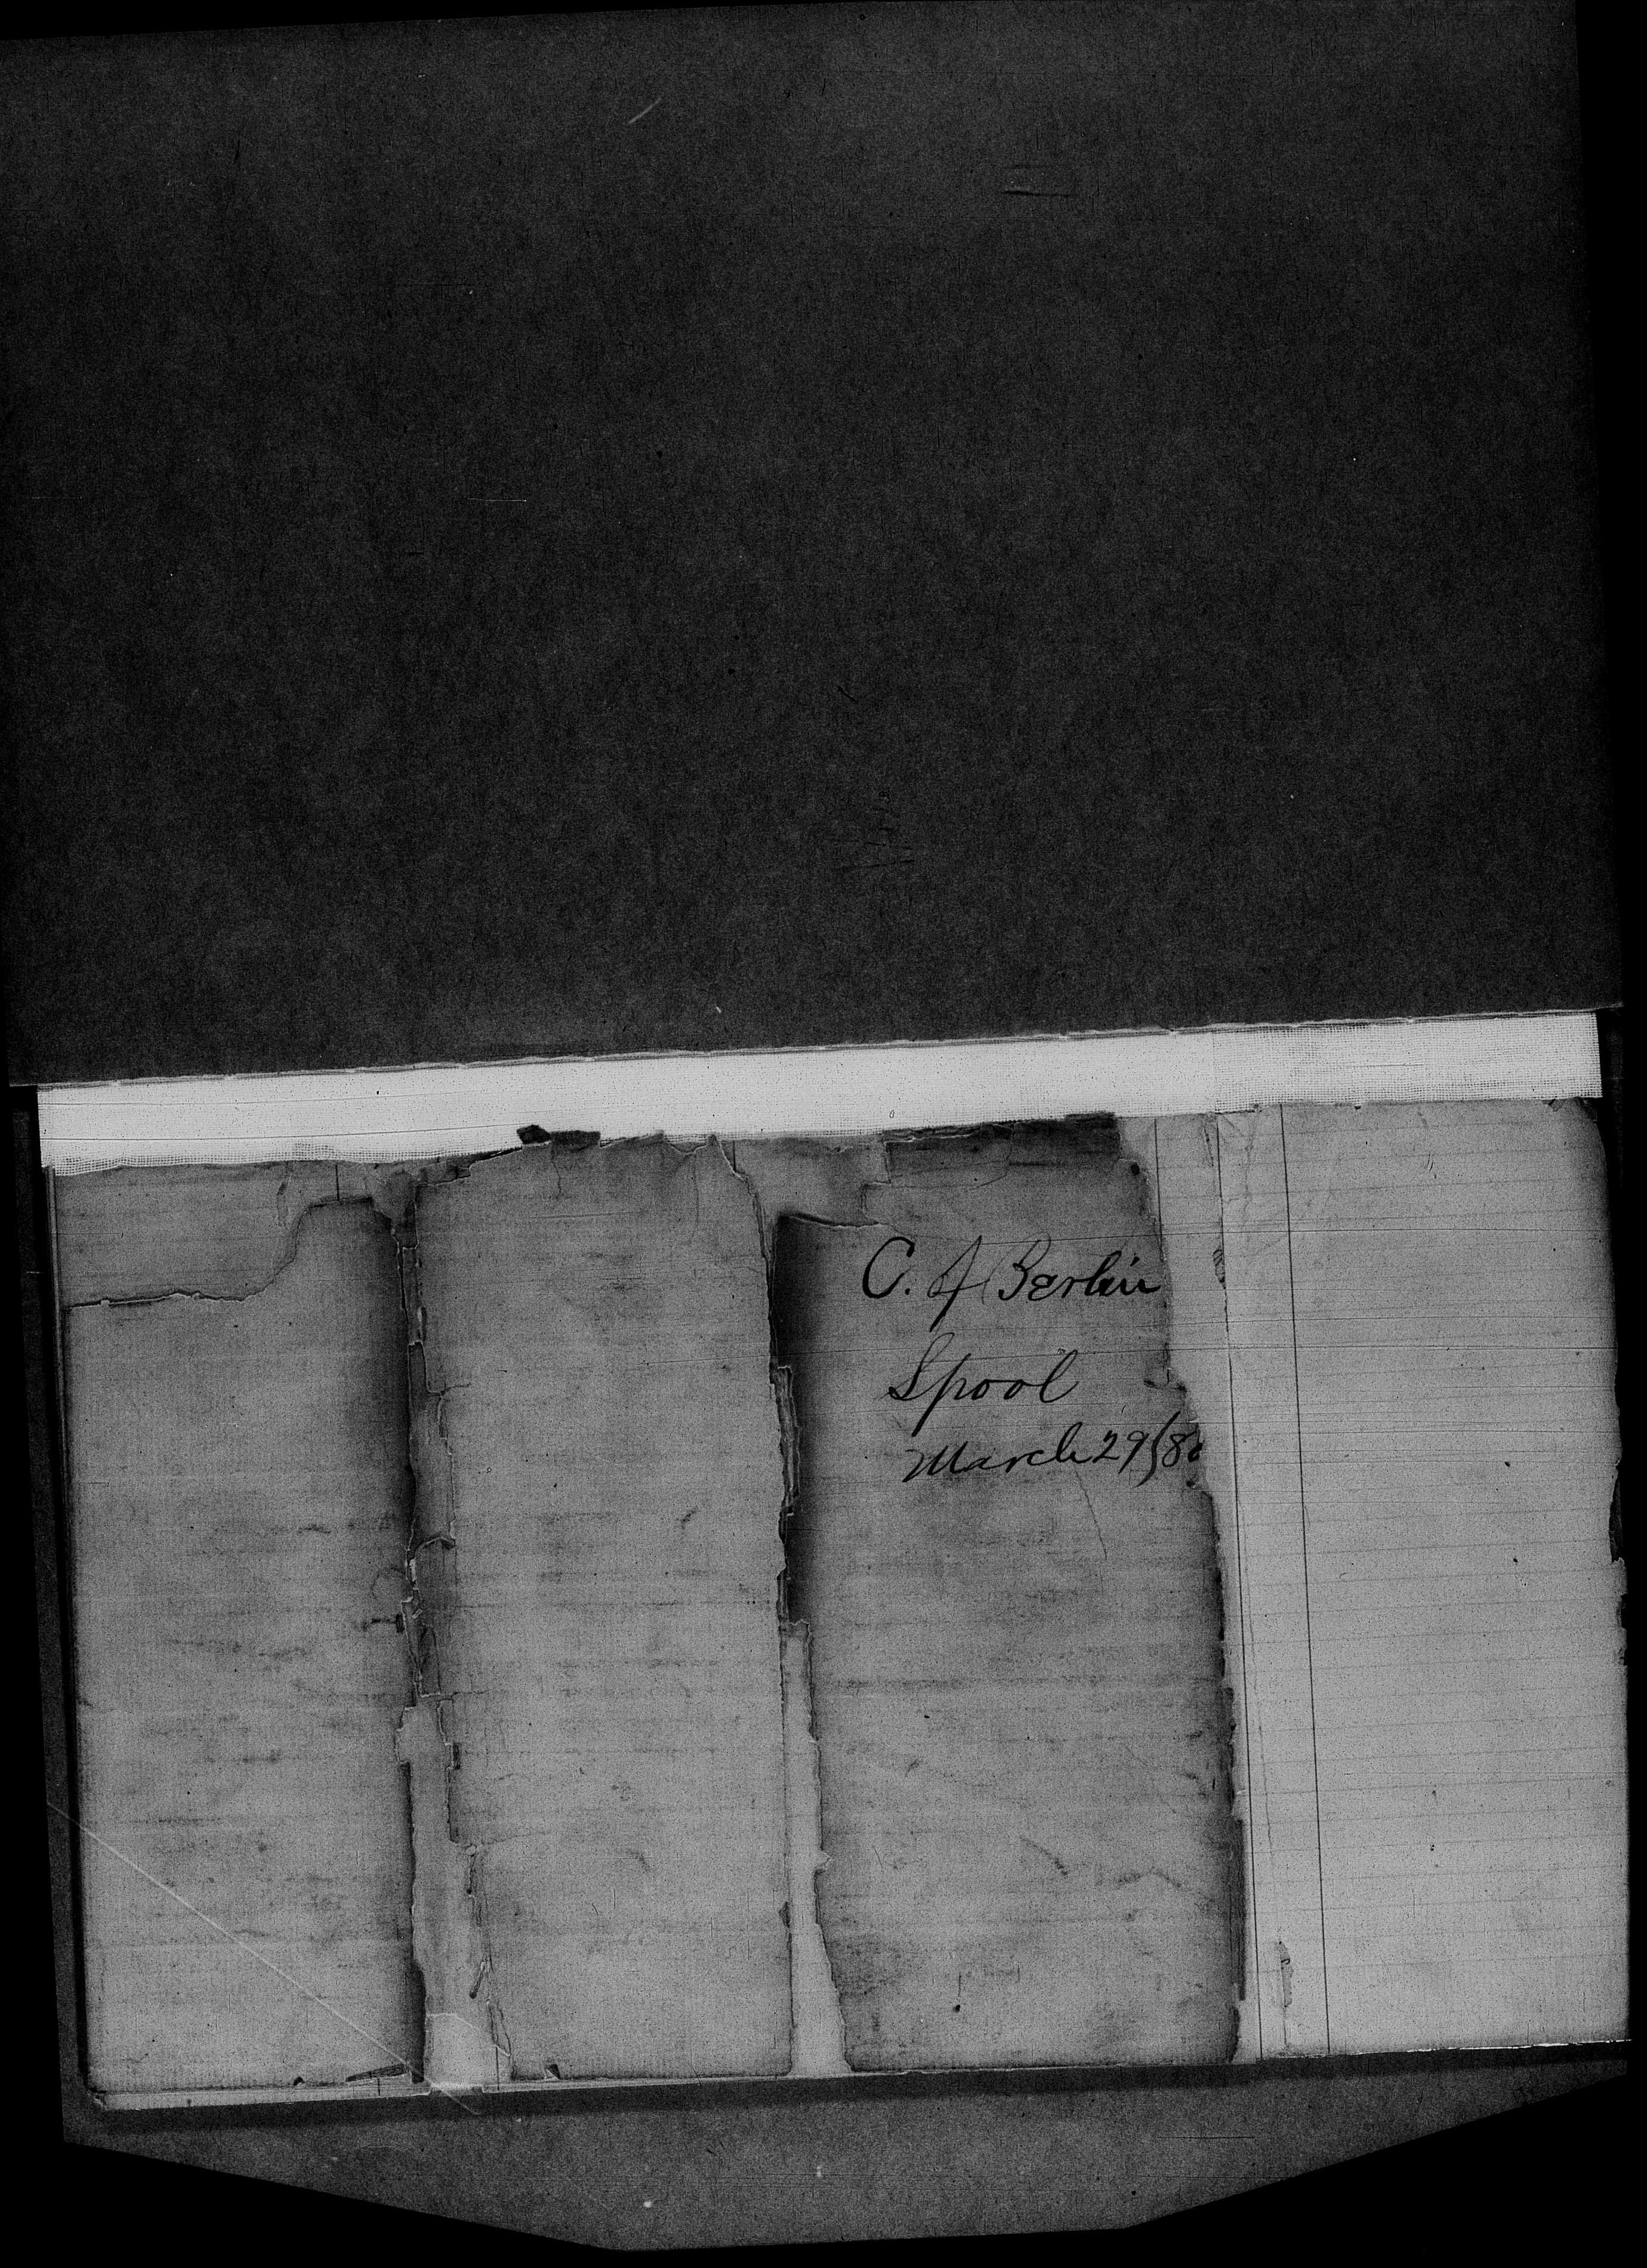 C. of Berlin
Spool
March 29/8